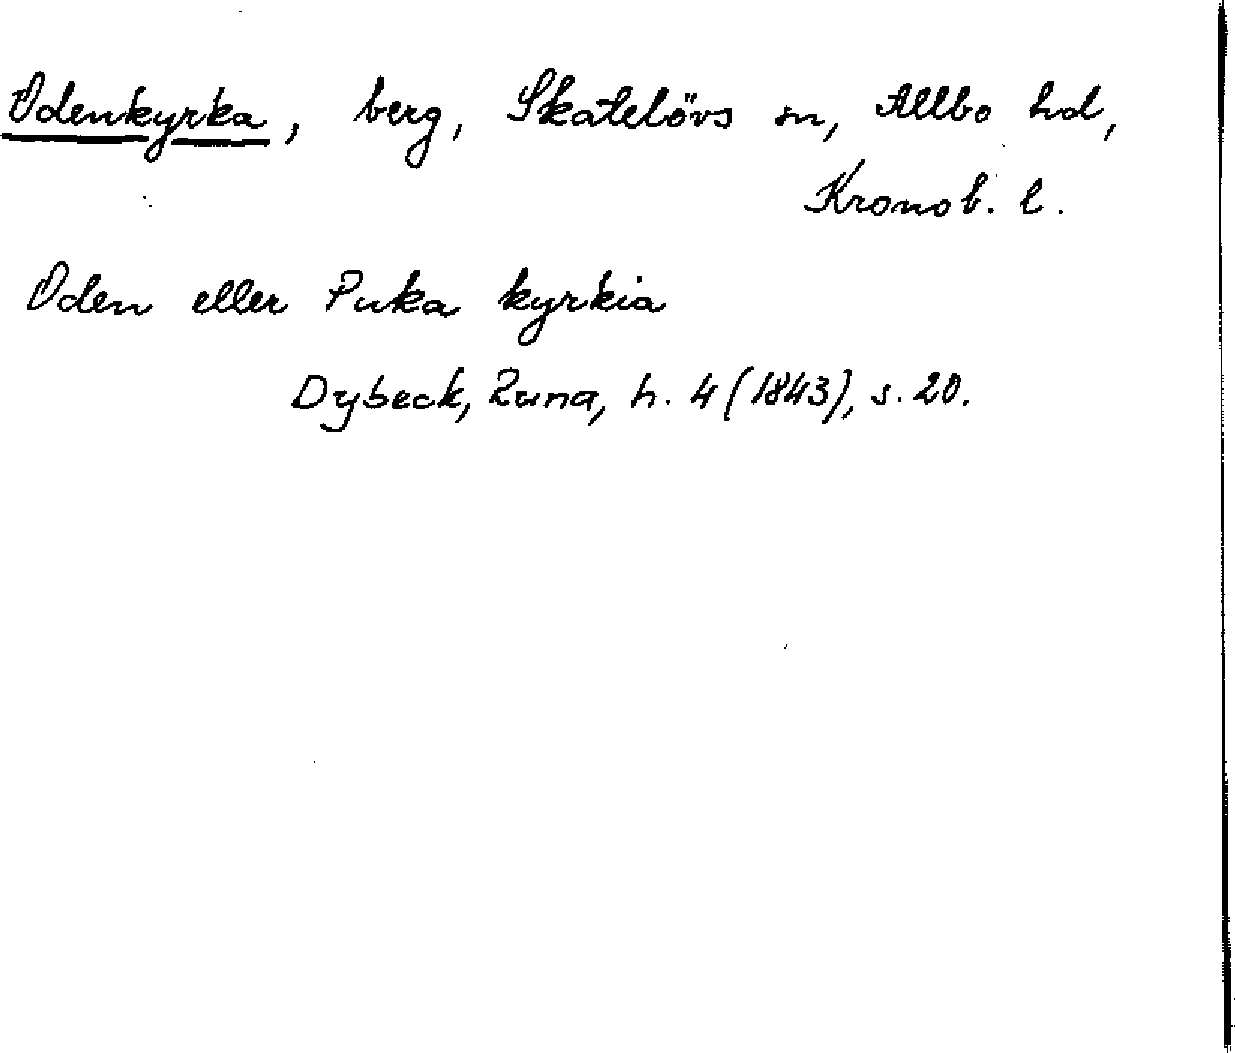 Odenkyrka, berg, Skatelövs sn, Allbo hd,
Kronob. l.
Oden eller Puka kyrkia
Dybeck, Runa, h. 4 (1843), s. 20.